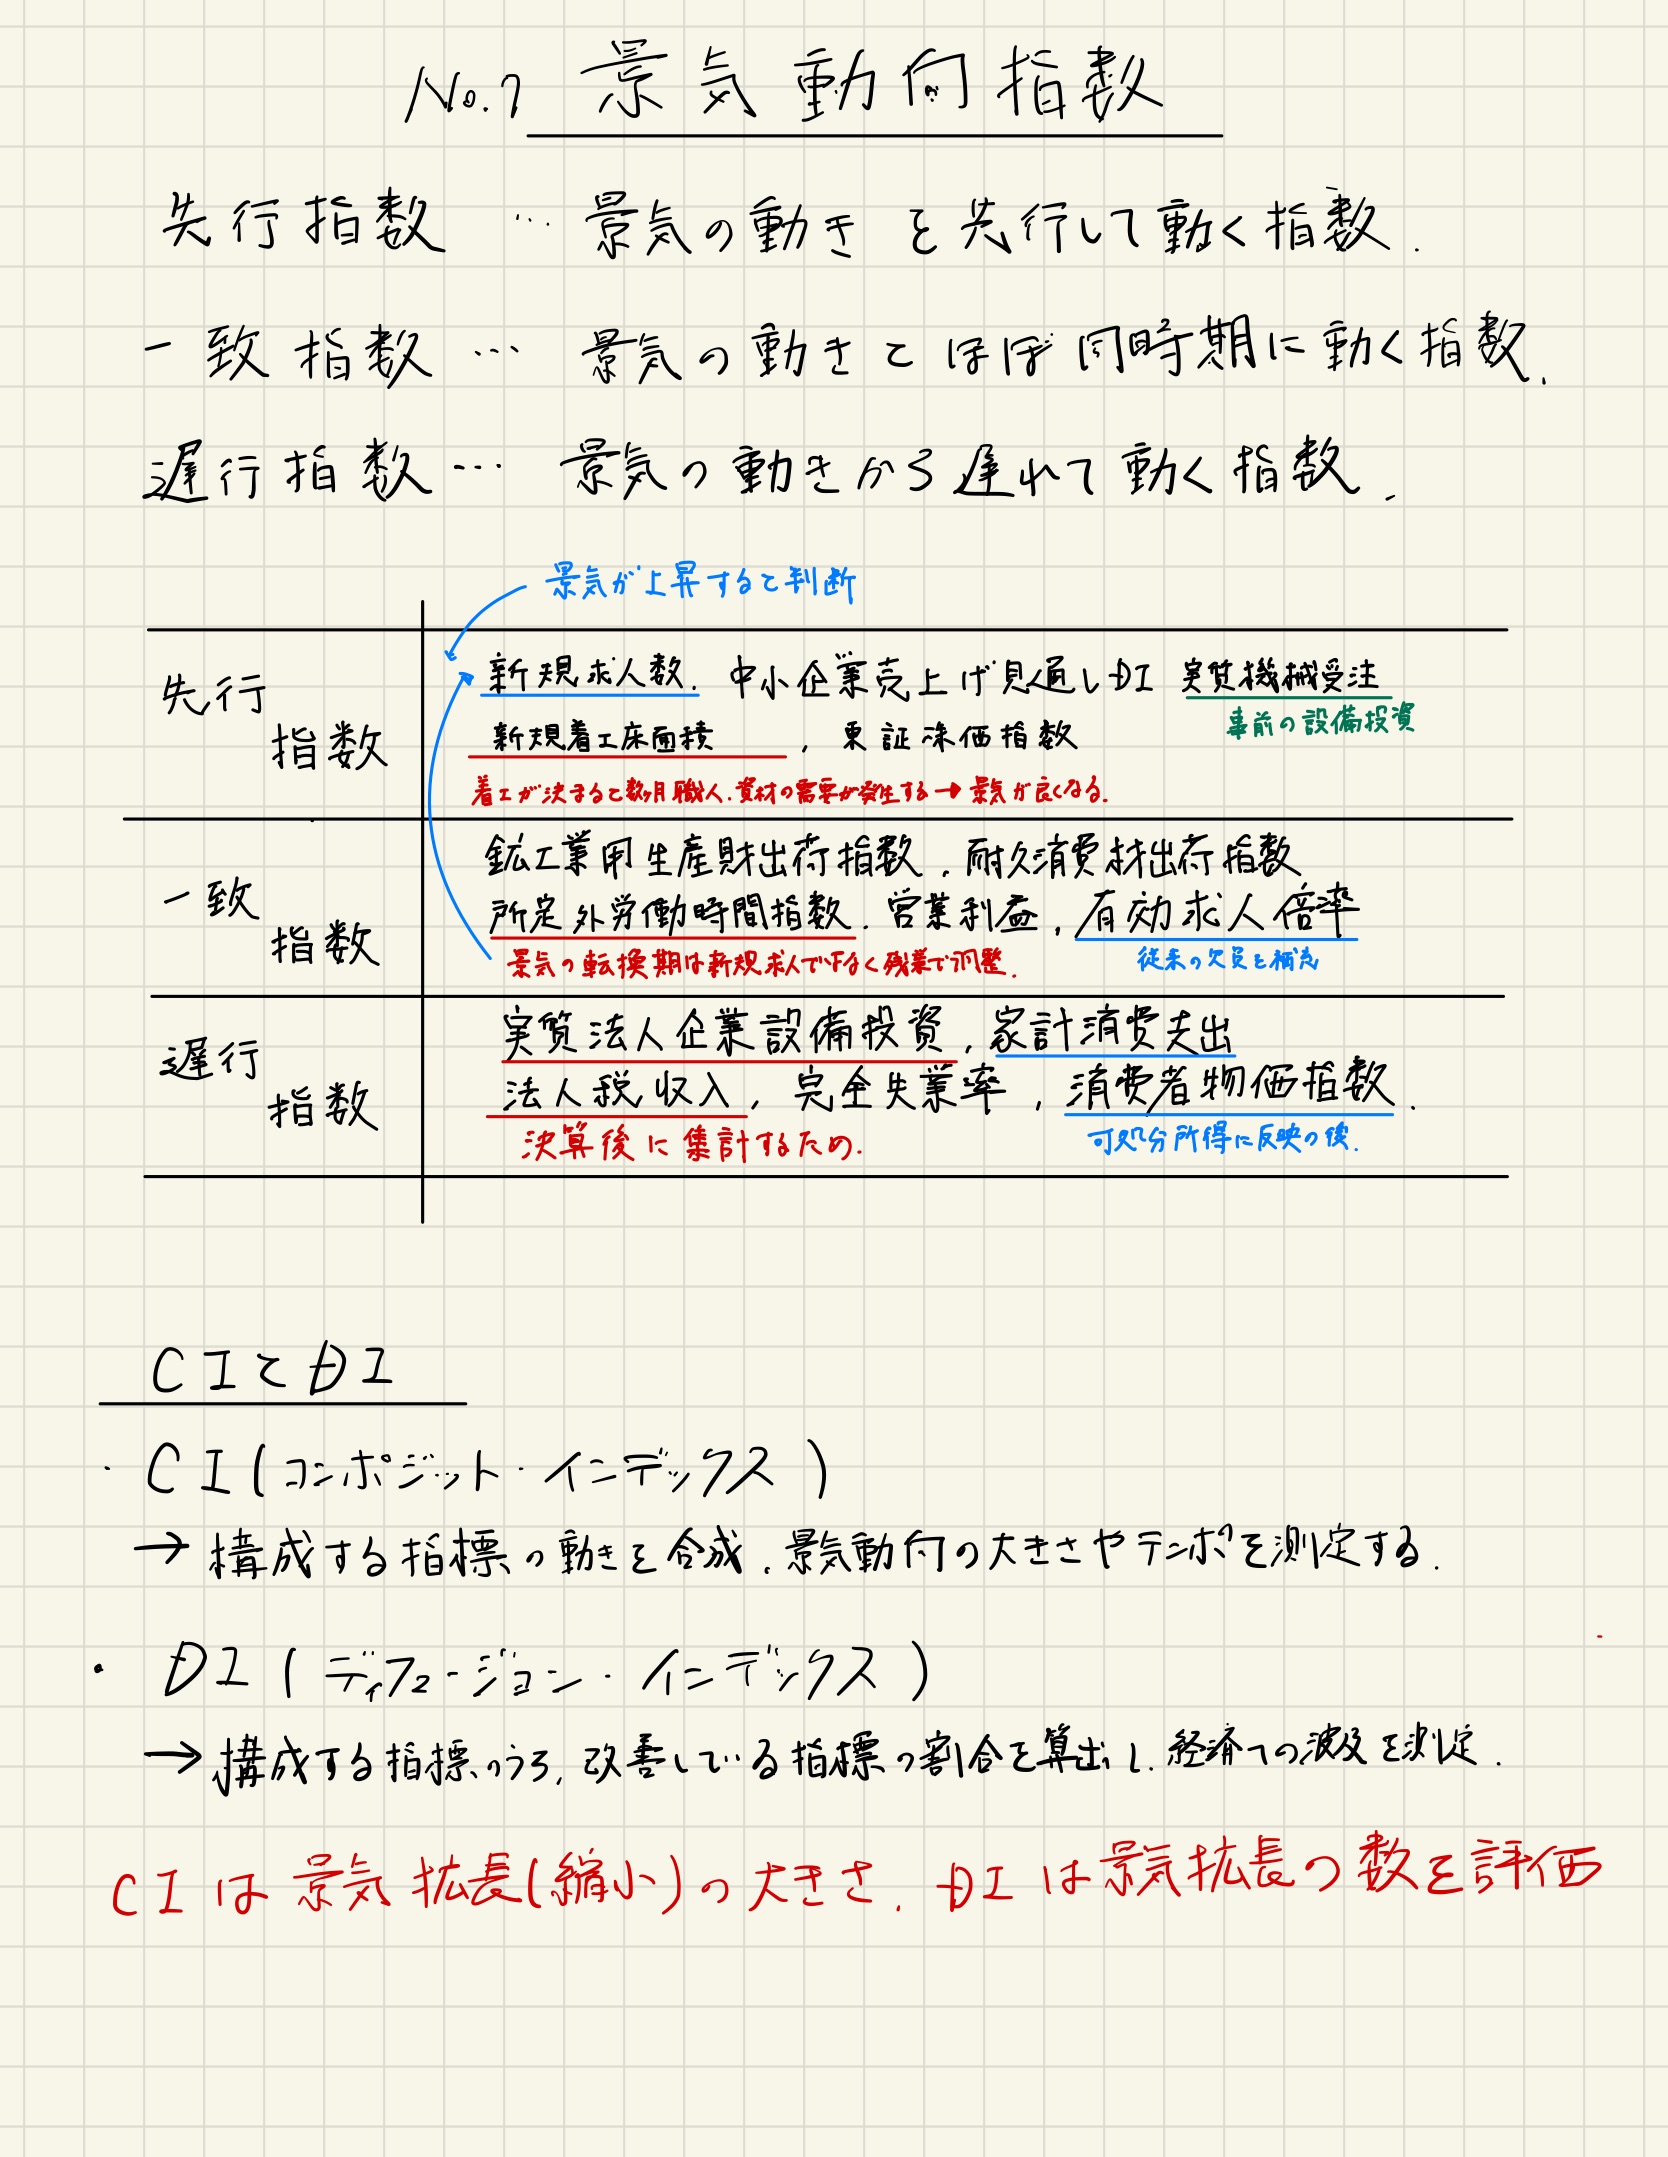 No.7 景気動向指数
先行指数 … 景気の動きを先行して動く指数.
一致指数 … 景気の動きとほぼ同時期に動く指数.
遅行指数 … 景気の動きから遅れて動く指数.
景気が上昇すると判断
先行指数
新規求人数. 中小企業売上げ見通しDI 実質機械受注
事前の設備投資
新規着工床面積, 東証株価指数
着工が決まると数ヶ月職人.資材の需要が発生する→景気が良くなる.
一致指数
鉱工業用生産財出荷指数, 耐久消費材出荷指数
所定外労働時間指数. 営業利益, 有効求人倍率
景気の転換期は新規求人で下なく残業で調整.
従来の欠員を補充
遅行指数
実質法人企業設備投資, 家計消費支出
法人税収入, 完全失業率, 消費者物価指数.
決算後に集計するため.
可処分所得に反映の後.
CIとDI
・CI(コンポジット・インデックス)
→構成する指標の動きを合成.景気動向の大きさやテンポを測定する.
・DI(ディフュージョン・インデックス)
→構成する指標のうち,改善している指標の割合を算出し.経済への波及を測定.
CIは景気拡張(縮小)の大きさ. DIは景気拡張の数を評価